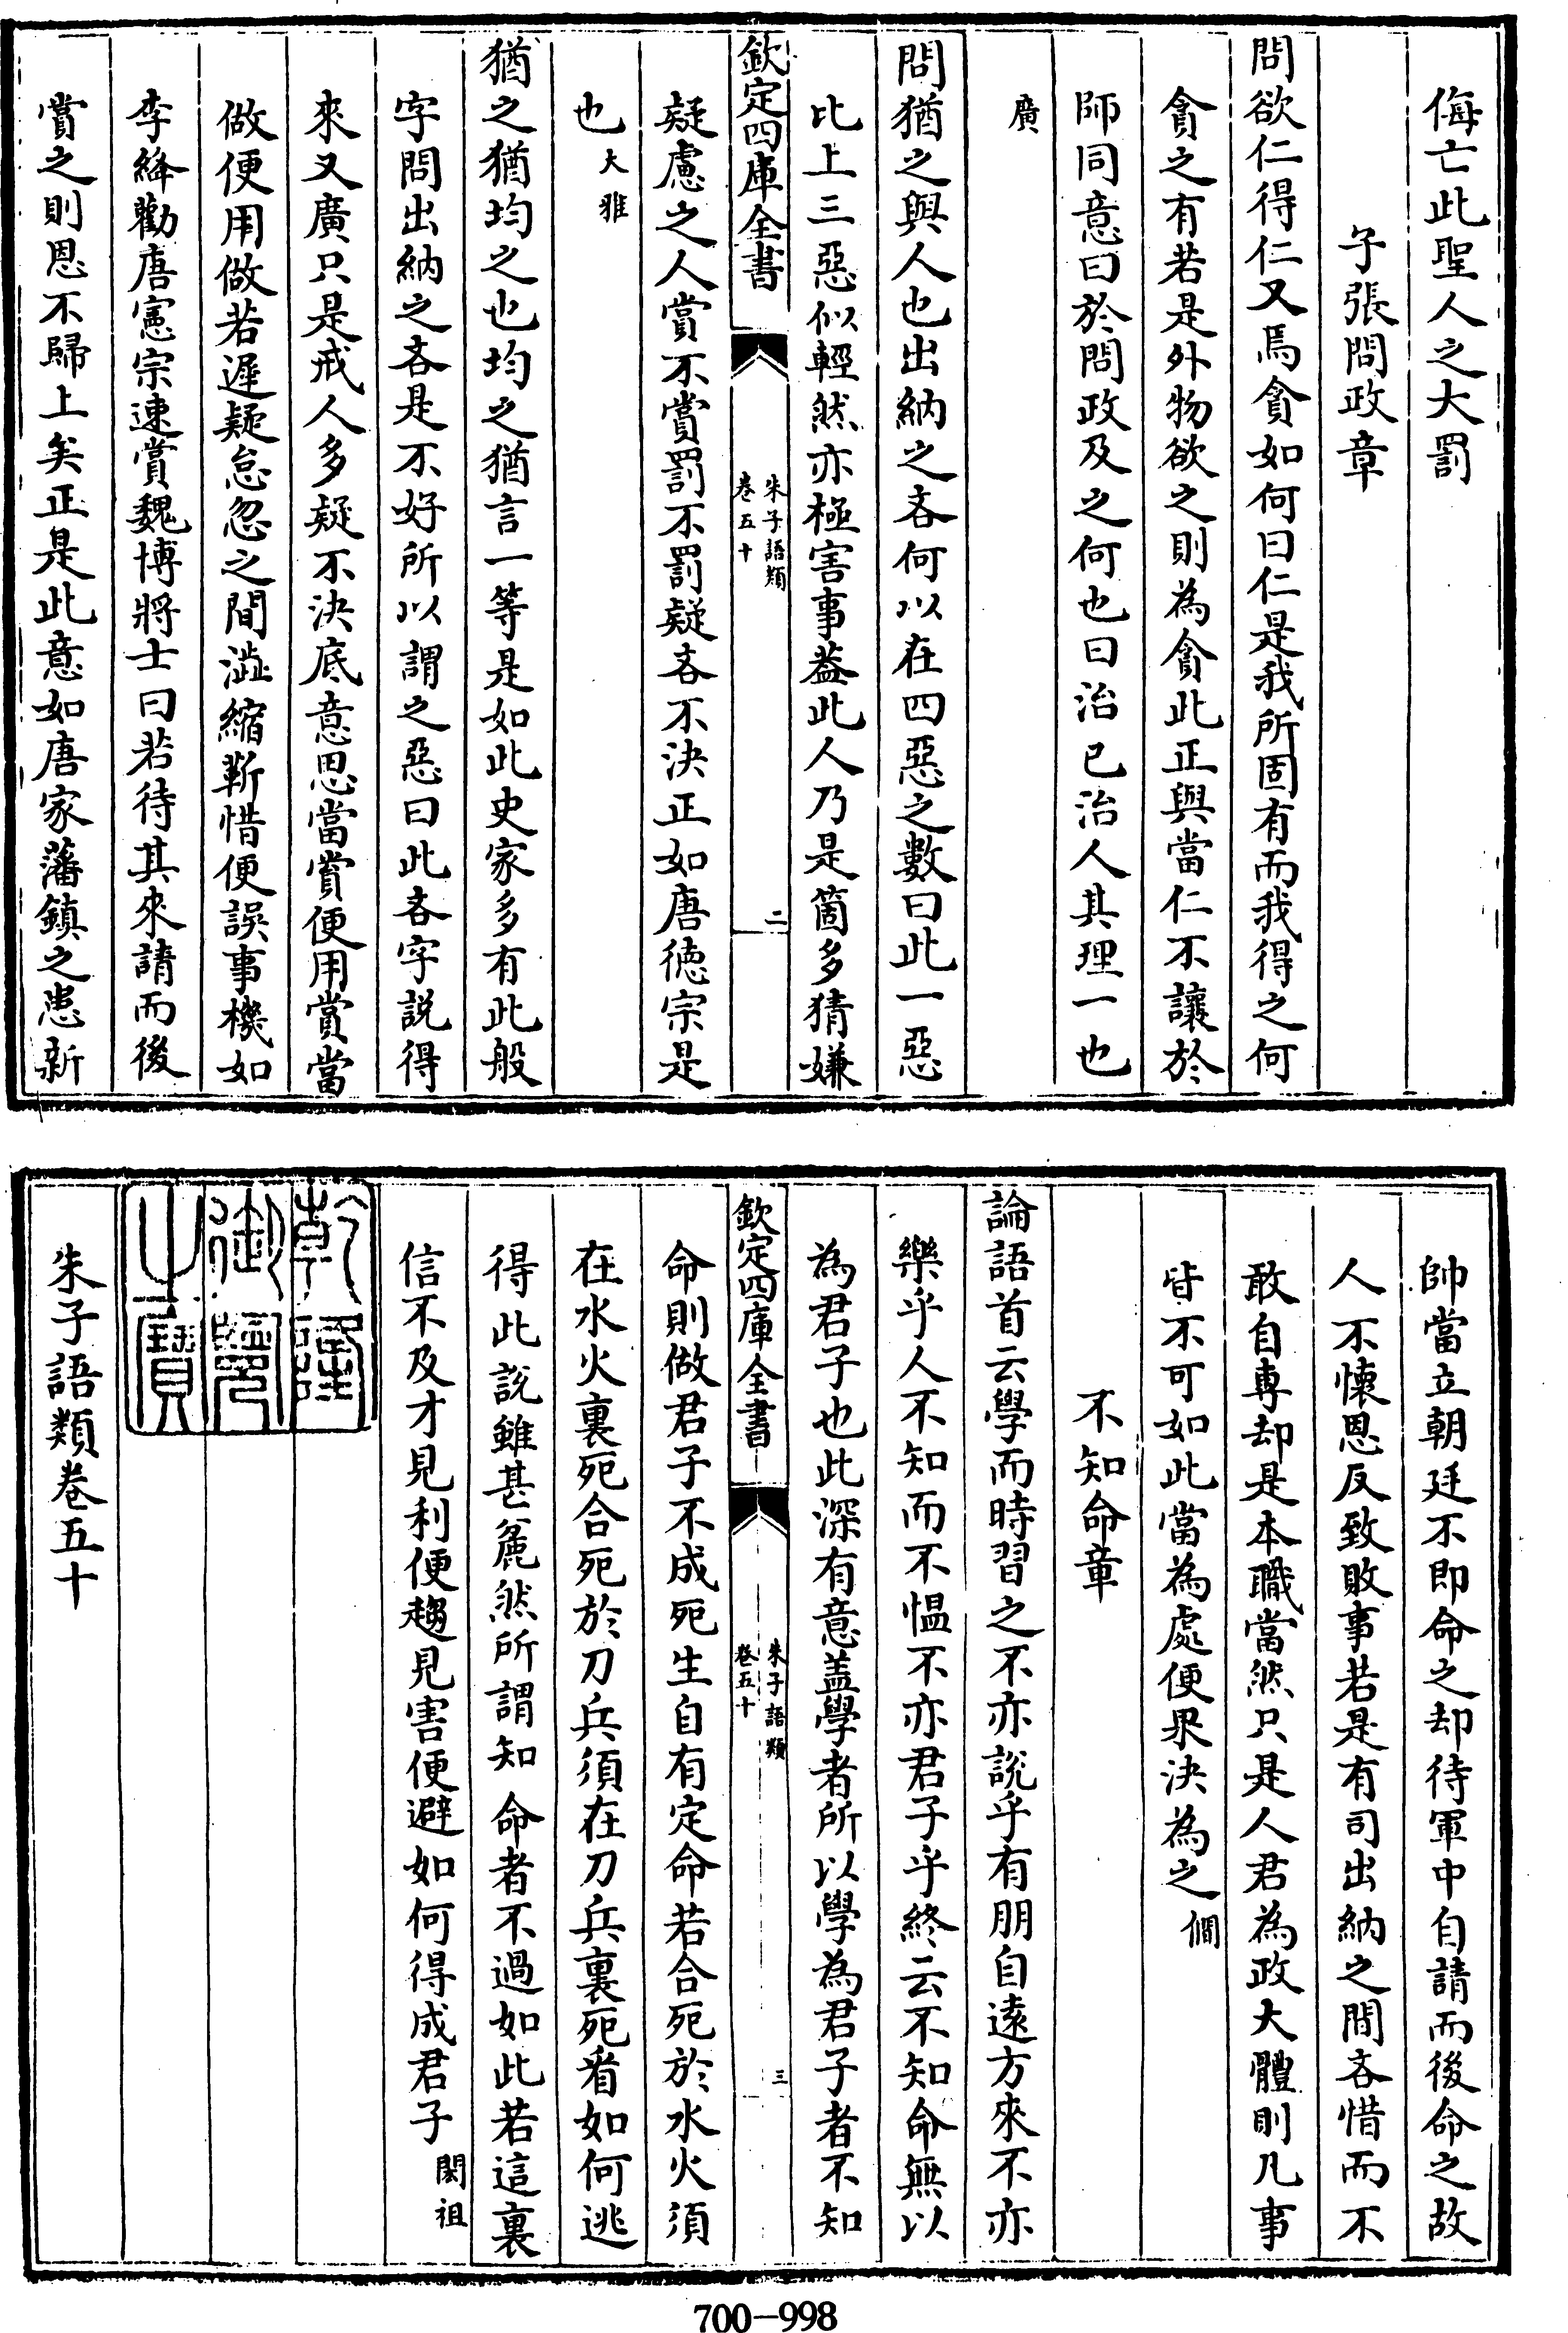 侮亡此聖人之大罰
子張問政章
問欲仁得仁又焉貪如何曰仁是我所固有而我得之何
貪之有若是外物欲之則為貪此正與當仁不讓於
師同意曰於問政及之何也曰治已治人其理一也
廣
問猶之與人也出納之吝何以在四惡之數曰此一惡
比上三惡似輕然亦極害事葢此人乃是箇多猜嫌
欽定四庫全書
朱子語類
卷五十
二
疑慮之人賞不賞罰不罰疑吝不決正如唐德宗是
也大雅
猶之猶均之也均之猶言一等是如此史家多有此般
字問出納之吝是不好所以謂之惡曰此吝字説得
來又廣只是戒人多疑不決底意思當賞便用賞當
做便用做若遲疑怠忽之間澁縮靳惜便誤事機如
李絳勸唐憲宗速賞魏博將士曰若待其來請而後
賞之則恩不歸上矣正是此意如唐家藩鎮之患新
帥當立朝廷不即命之却待軍中自請而後命之故
人不懷恩反致敗事若是有司出納之間吝惜而不
敢自専却是本職當然只是人君為政大體則凡事
皆不可如此當為處便果決為之 僩
不知命章
論語首云學而時習之不亦説乎有朋自遠方來不亦
樂乎人不知而不慍不亦君子乎終云不知命無以
為君子也此深有意盖學者所以學為君子者不知
欽定四庫全書
朱子語類
卷五十
三
命則做君子不成死生自有定命若合死於水火須
在水火裏死合死於刀兵須在刀兵裏死看如何逃
得此説雖甚麄然所謂知命者不過如此若這裏
信不及才見利便趨見害便避如何得成君子 閎祖
乾隆
御覽
之寶
朱子語類卷五十
700-998